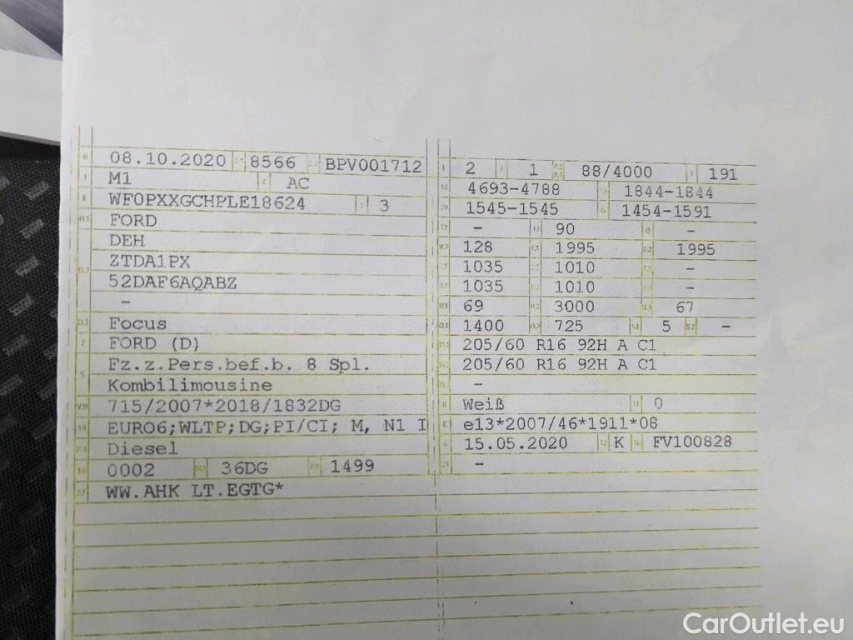 08.10.2020 8566 BPV001712
M1 AC
WF0PXXGCHPLE18624 3
FORD
DEH
ZTDA1PX
52DAF6AQABZ
-
Focus
FORD (D)
Fz.z.Pers.bef.b. 8 Spl.
Kombilimousine
715/2007*2018/1832DG
EURO6;WLTP;DG;PI/CI; M, N1 I
Diesel
0002 36DG 1499
WW.AHK LT.EGTG*
2 1 88/4000 191
4693-4788 1844-1844
1545-1545 1454-1591
- 90 -
128 1995 1995
1035 1010 -
1035 1010 -
69 3000 67
1400 725 5 -
205/60 R16 92H A C1
205/60 R16 92H A C1
-
Weiß 0
e13*2007/46*1911*08
15.05.2020 K FV100828
-
CarOutlet.eu